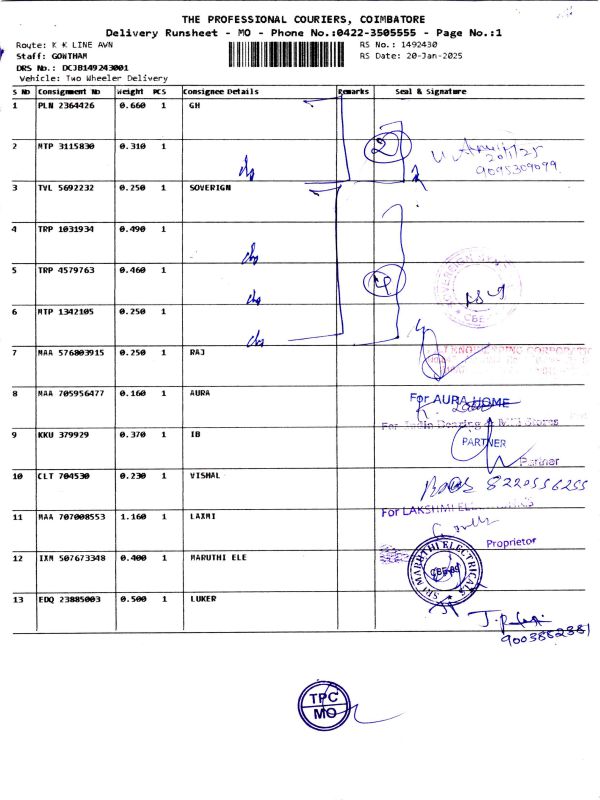 THE PROFESSIONAL COURIERS, COIMBATORE
Delivery Runsheet - MO - Phone No.:0422-3505555 - Page No.:1
Route: K K LINE AWN
RS No.: 1492430
Staff: GOWTHAM
RS Date: 20-Jan-2025
DRS No.: DCJB149243001
Vehicle: Two Wheeler Delivery
S No Consignment No Weight PCS Consignee Details Remarks Seal & Signature
1 PLN 2364426 0.660 1 GH
2 MTP 3115830 0.310 1
2
20/1/25
9095309099
3 TVL 5692232 0.250 1 SOVERIGN
4 TRP 1031934 0.490 1
5 TRP 4579763 0.460 1
4
6 MTP 1342105 0.250 1
7 MAA 576803915 0.250 1 RAJ
8 MAA 705956477 0.160 1 AURA
For AURA HOME
9 KKU 379929 0.370 1 IB
PARTNER
Partner
10 CLT 704530 0.230 1 VISHAL
8220556255
11 MAA 707008553 1.160 1 LAXMI
For LAKSHMI
Proprietor
12 IXM 507673348 0.400 1 MARUTHI ELE
SRI MARUTHI ELECTRICALS
13 EDQ 23885003 0.500 1 LUKER
9003862381
TPC
MO